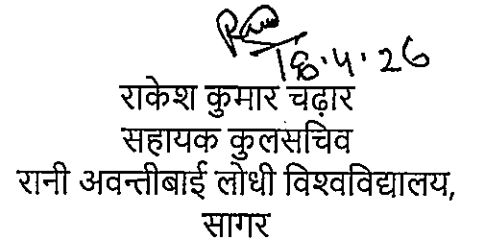 18.4.26
राकेश कुमार चढ़ार
सहायक कुलसचिव
रानी अवन्तीबाई लोधी विश्वविद्यालय,
सागर